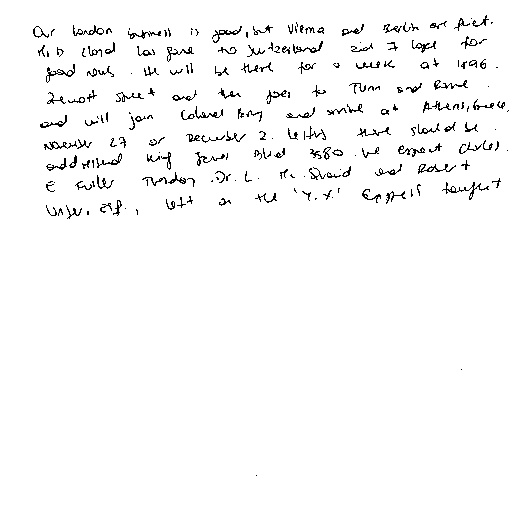 Our London business is good, but Vienna and Berlin are quiet.
Mr. D. Lloyd has gone to Switzerland and I hope for
good news. He will be there for a week at 1496
Zermott Street and then goes to Turin and Rome
and will join Colonel Parry and arrive at Athens, Greece,
November 27 or December 2. Letters there should be
addressed King James Blvd 3580. We expect Charles
E Fuller Thursday. Dr. L. Mc. Quaid and Robert
Unger, Esq., left on the 'Y.X.' Express tonight